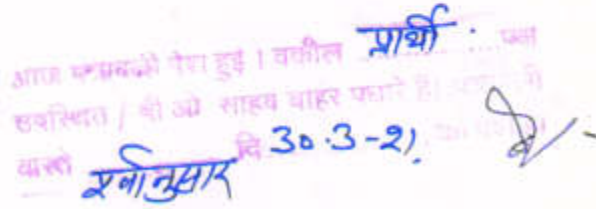 आज पत्रावली पेश हुई । वकील प्रार्थी
उपस्थित / बी ओ साहब बाहर पधारे हैं।
वास्ते पूर्वानुसार दि 30.3-21.